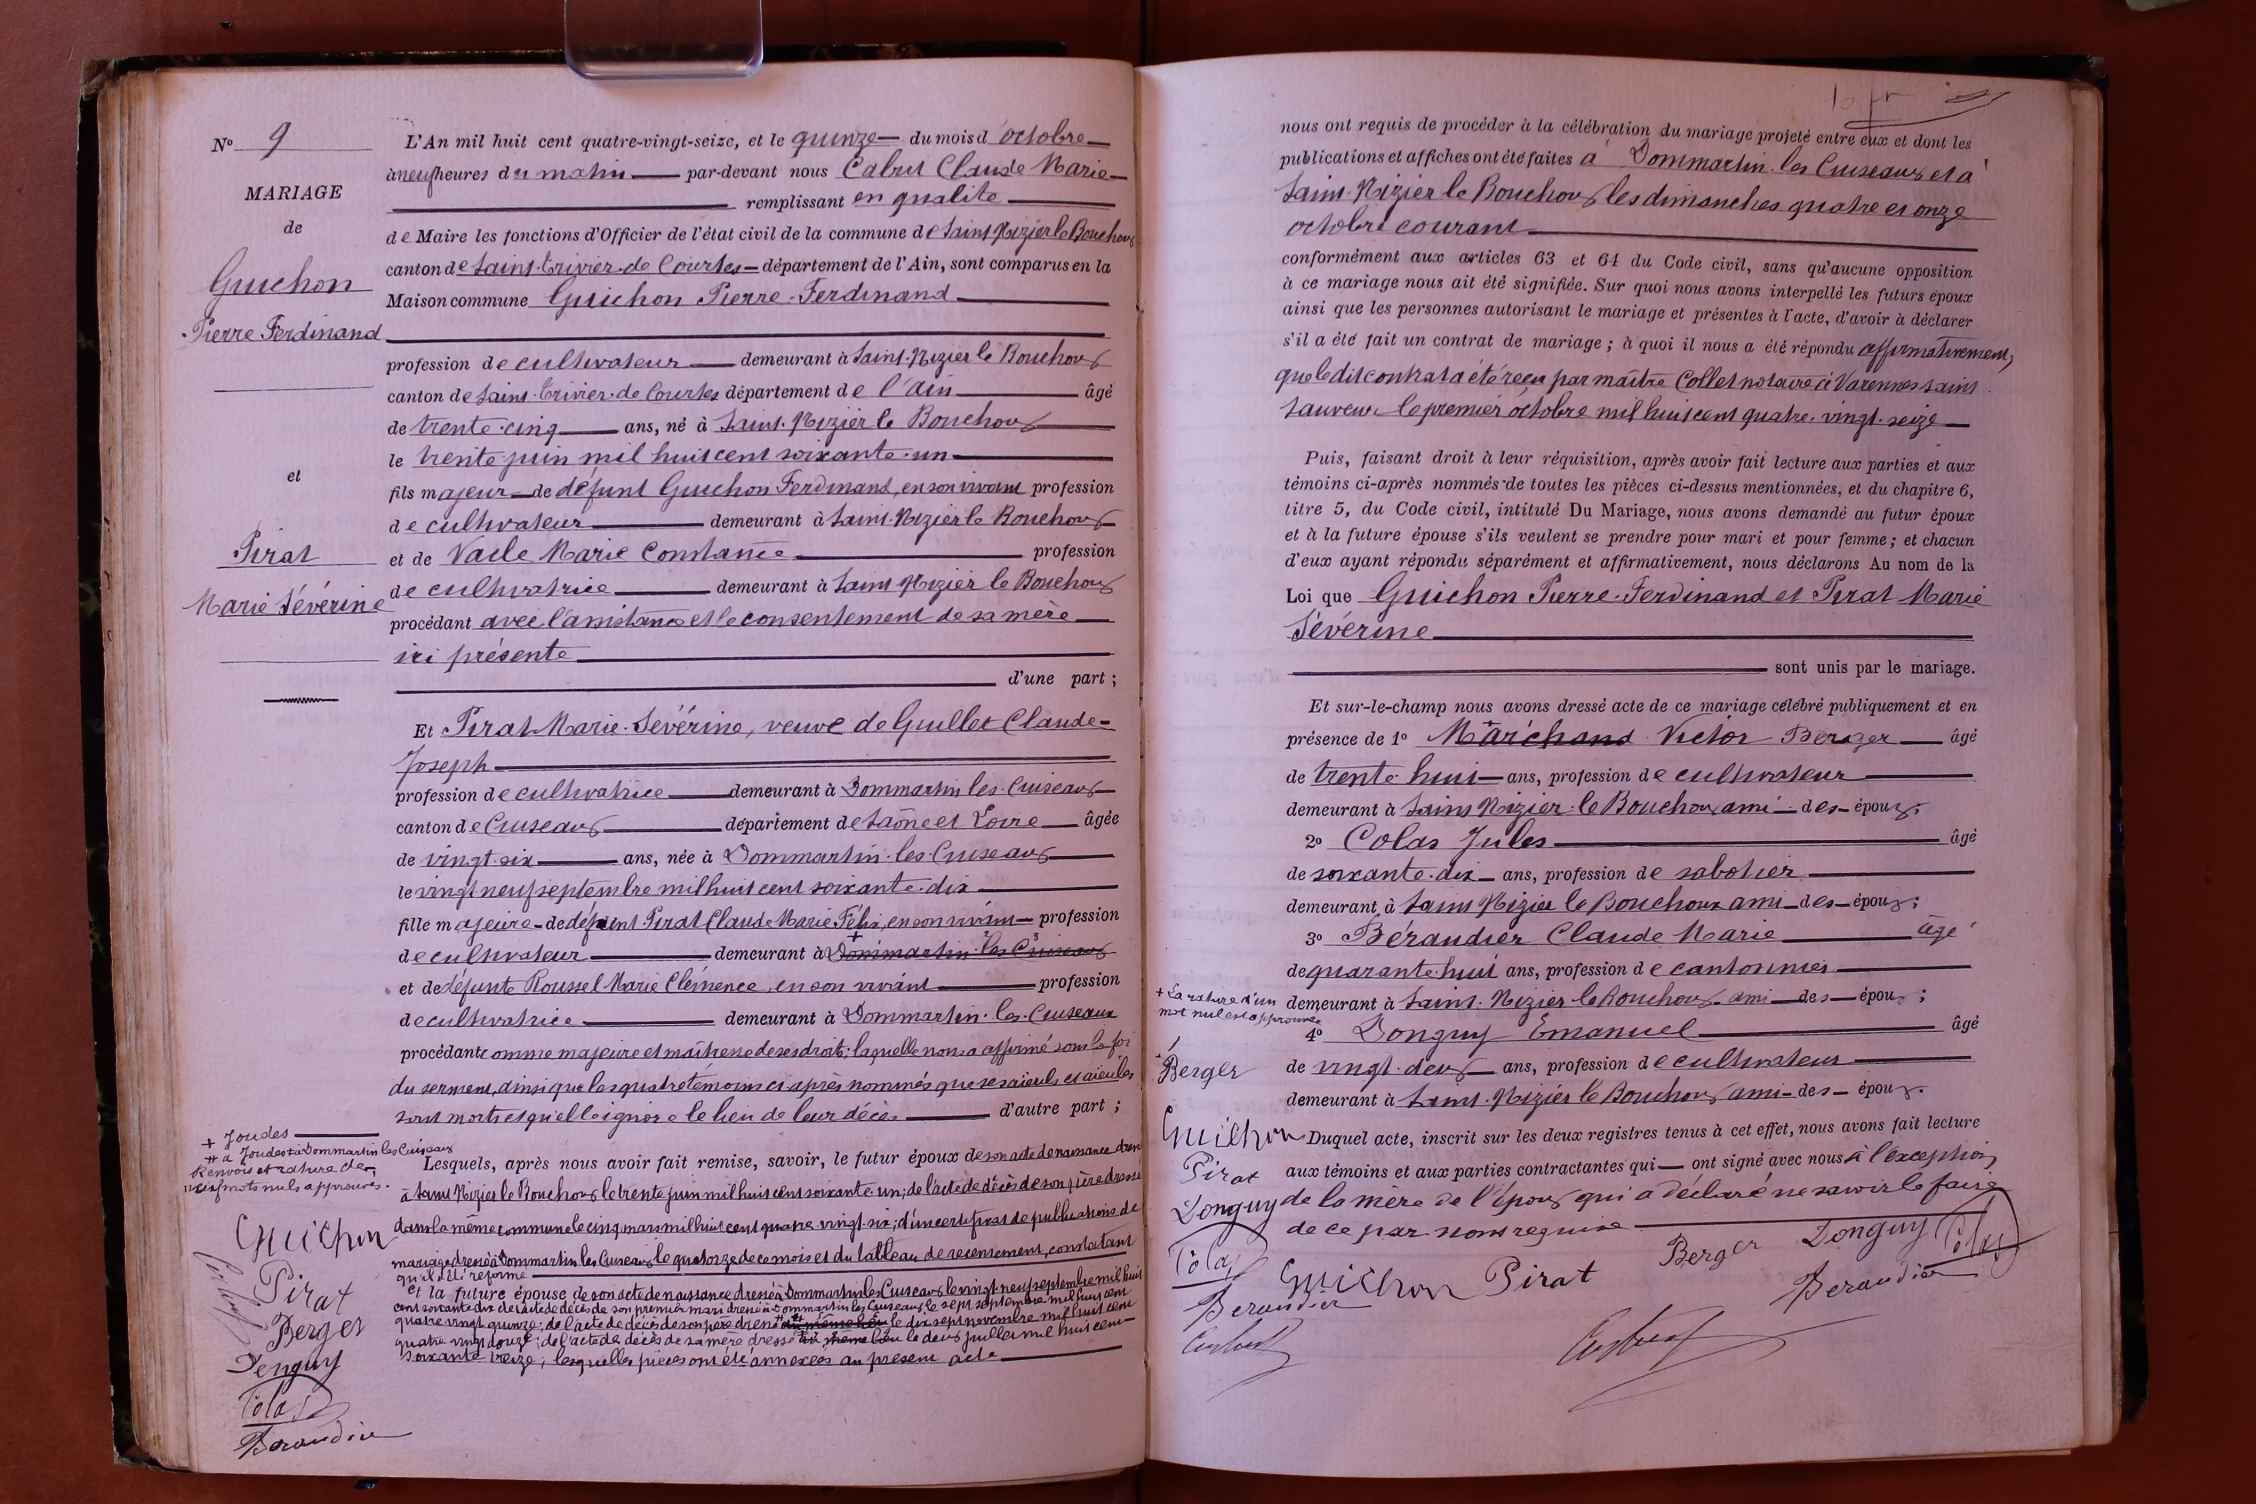 No 9
MARIAGE
de
Guichon
Pierre Ferdinand
et
Pirat
Marie Séverine
L'An mil huit cent quatre-vingt-seize, et le quinze du mois d'octobre
à neuf heures du matin par-devant nous Cabut Claude Marie
remplissant en qualité
de Maire les fonctions d'Officier de l'état civil de la commune de Saint Nizier le Bouchoux
canton de Saint-Trivier-de Courtes département de l'Ain, sont comparus en la
Maison commune Guichon Pierre-Ferdinand
profession de cultivateur demeurant à Saint-Nizier le Bouchoux
canton de Saint-Trivier-de Courtes département de l'Ain âgé
de trente-cinq ans, né à Saint-Nizier le Bouchoux
le trente juin mil huit cent soixante-un
fils majeur de défunt Guichon Ferdinand, en son vivant profession
de cultivateur demeurant à Saint-Nizier le Bouchoux
et de Marie Constance profession
de cultivatrice demeurant à Saint Nizier le Bouchoux
procédant avec l'assistance et le consentement de sa mère
ici présente
d'une part ;
Et Pirat Marie-Séverine, veuve de Guillet Claude-
Joseph
profession de cultivatrice demeurant à Dommartin les-Cuiseaux
canton de Cuiseaux département de Saône et Loire âgée
de vingt-six ans, née à Dommartin-les Cuiseaux
le vingt neuf septembre mil huit cent soixante-dix
fille majeure de défunt Pirat Claude Marie Félix, en son vivant profession
de cultivateur demeurant à Dommartin-les Cuiseaux
et de défunte Roussel Marie Clémence, en son vivant profession
de cultivatrice demeurant à Dommartin-les-Cuiseaux
procédant comme majeure et maîtresse de ses droits; laquelle nous a affirmé sous la foi
du serment, ainsi que les quatre témoins ci-après nommés que ses aïeuls et aïeules
sont morts et qu'elle ignore le lieu de leur décès d'autre part ;
+ Joudes
# à Joudes à Dommartin les Cuiseaux
Renvois et rature de
neuf mots nuls approuvés.
Guichon
Pirat
Berger
Donguy
Colas
Beraudier
Lesquels, après nous avoir fait remise, savoir, le futur époux de son acte de naissance dressé
à Saint Nizier le Bouchoux le trente juin mil huit cent soixante un; de l'acte de décès de son père dressé
dans la même commune le cinq mars mil huit cent quatre vingt-six; d'un certificat de publications de
mariage dressé à Dommartin les Cuiseaux le quatorze de ce mois et du tableau de recensement, constatant
qu'il a été réformé
et la future épouse de son acte de naissance dressé à Dommartin les Cuiseaux le vingt neuf septembre mil huit
cent soixante dix de l'acte de décès de son premier mari dressé à Dommartin les Cuiseaux le sept septembre mil huit cent
quatre vingt quinze; de l'acte de décès de son père dressé au même lieu le dix sept novembre mil huit cent
quatre vingt douze; de l'acte de décès de sa mère dressé au même lieu le deux juillet mil huit cent
soixante treize; lesquelles pièces ont été annexées au présent acte
nous ont requis de procéder à la célébration du mariage projeté entre eux et dont les
publications et affiches ont été faites à Dommartin-les Cuiseaux et à
Saint-Nizier le Bouchoux les dimanches quatre et onze
octobre courant
conformément aux articles 63 et 64 du Code civil, sans qu'aucune opposition
à ce mariage nous ait été signifiée. Sur quoi nous avons interpellé les futurs époux
ainsi que les personnes autorisant le mariage et présentes à l'acte, d'avoir à déclarer
s'il a été fait un contrat de mariage ; à quoi il nous a été répondu affirmativement,
que le dit contrat a été reçu par maître Collet notaire à Varennes Saint
Sauveur le premier octobre mil huit cent quatre-vingt-seize
Puis, faisant droit à leur réquisition, après avoir fait lecture aux parties et aux
témoins ci-après nommés de toutes les pièces ci-dessus mentionnées, et du chapitre 6,
titre 5, du Code civil, intitulé Du Mariage, nous avons demandé au futur époux
et à la future épouse s'ils veulent se prendre pour mari et pour femme ; et chacun
d'eux ayant répondu séparément et affirmativement, nous déclarons Au nom de la
Loi que Guichon Pierre-Ferdinand et Pirat Marie
Séverine
sont unis par le mariage.
Et sur-le-champ nous avons dressé acte de ce mariage célébré publiquement et en
présence de 1o Marchand Victor Berger âgé
de trente-huit ans, profession de cultivateur
demeurant à Saint Nizier-le Bouchoux ami des époux;
2o Colas Jules âgé
de soixante-dix ans, profession de sabotier
demeurant à Saint Nizier le Bouchoux ami des époux;
3o Bérandier Claude Marie âgé
de quarante-huit ans, profession de cantonnier
demeurant à Saint-Nizier le Bouchoux ami des époux ;
4o Donguy Emanuel âgé
de vingt-deux ans, profession de cultivateur
demeurant à Saint-Nizier le Bouchoux ami des époux.
+ La rature d'un
mot nul est approuvée
Berger
Guichon
Pirat
Donguy
Colas
Beraudier
Duquel acte, inscrit sur les deux registres tenus à cet effet, nous avons fait lecture
aux témoins et aux parties contractantes qui ont signé avec nous à l'exception
de la mère de l'époux qui a déclaré ne savoir le faire
de ce par nous requise
Guichon Pirat Berger Donguy Colas
Beraudier